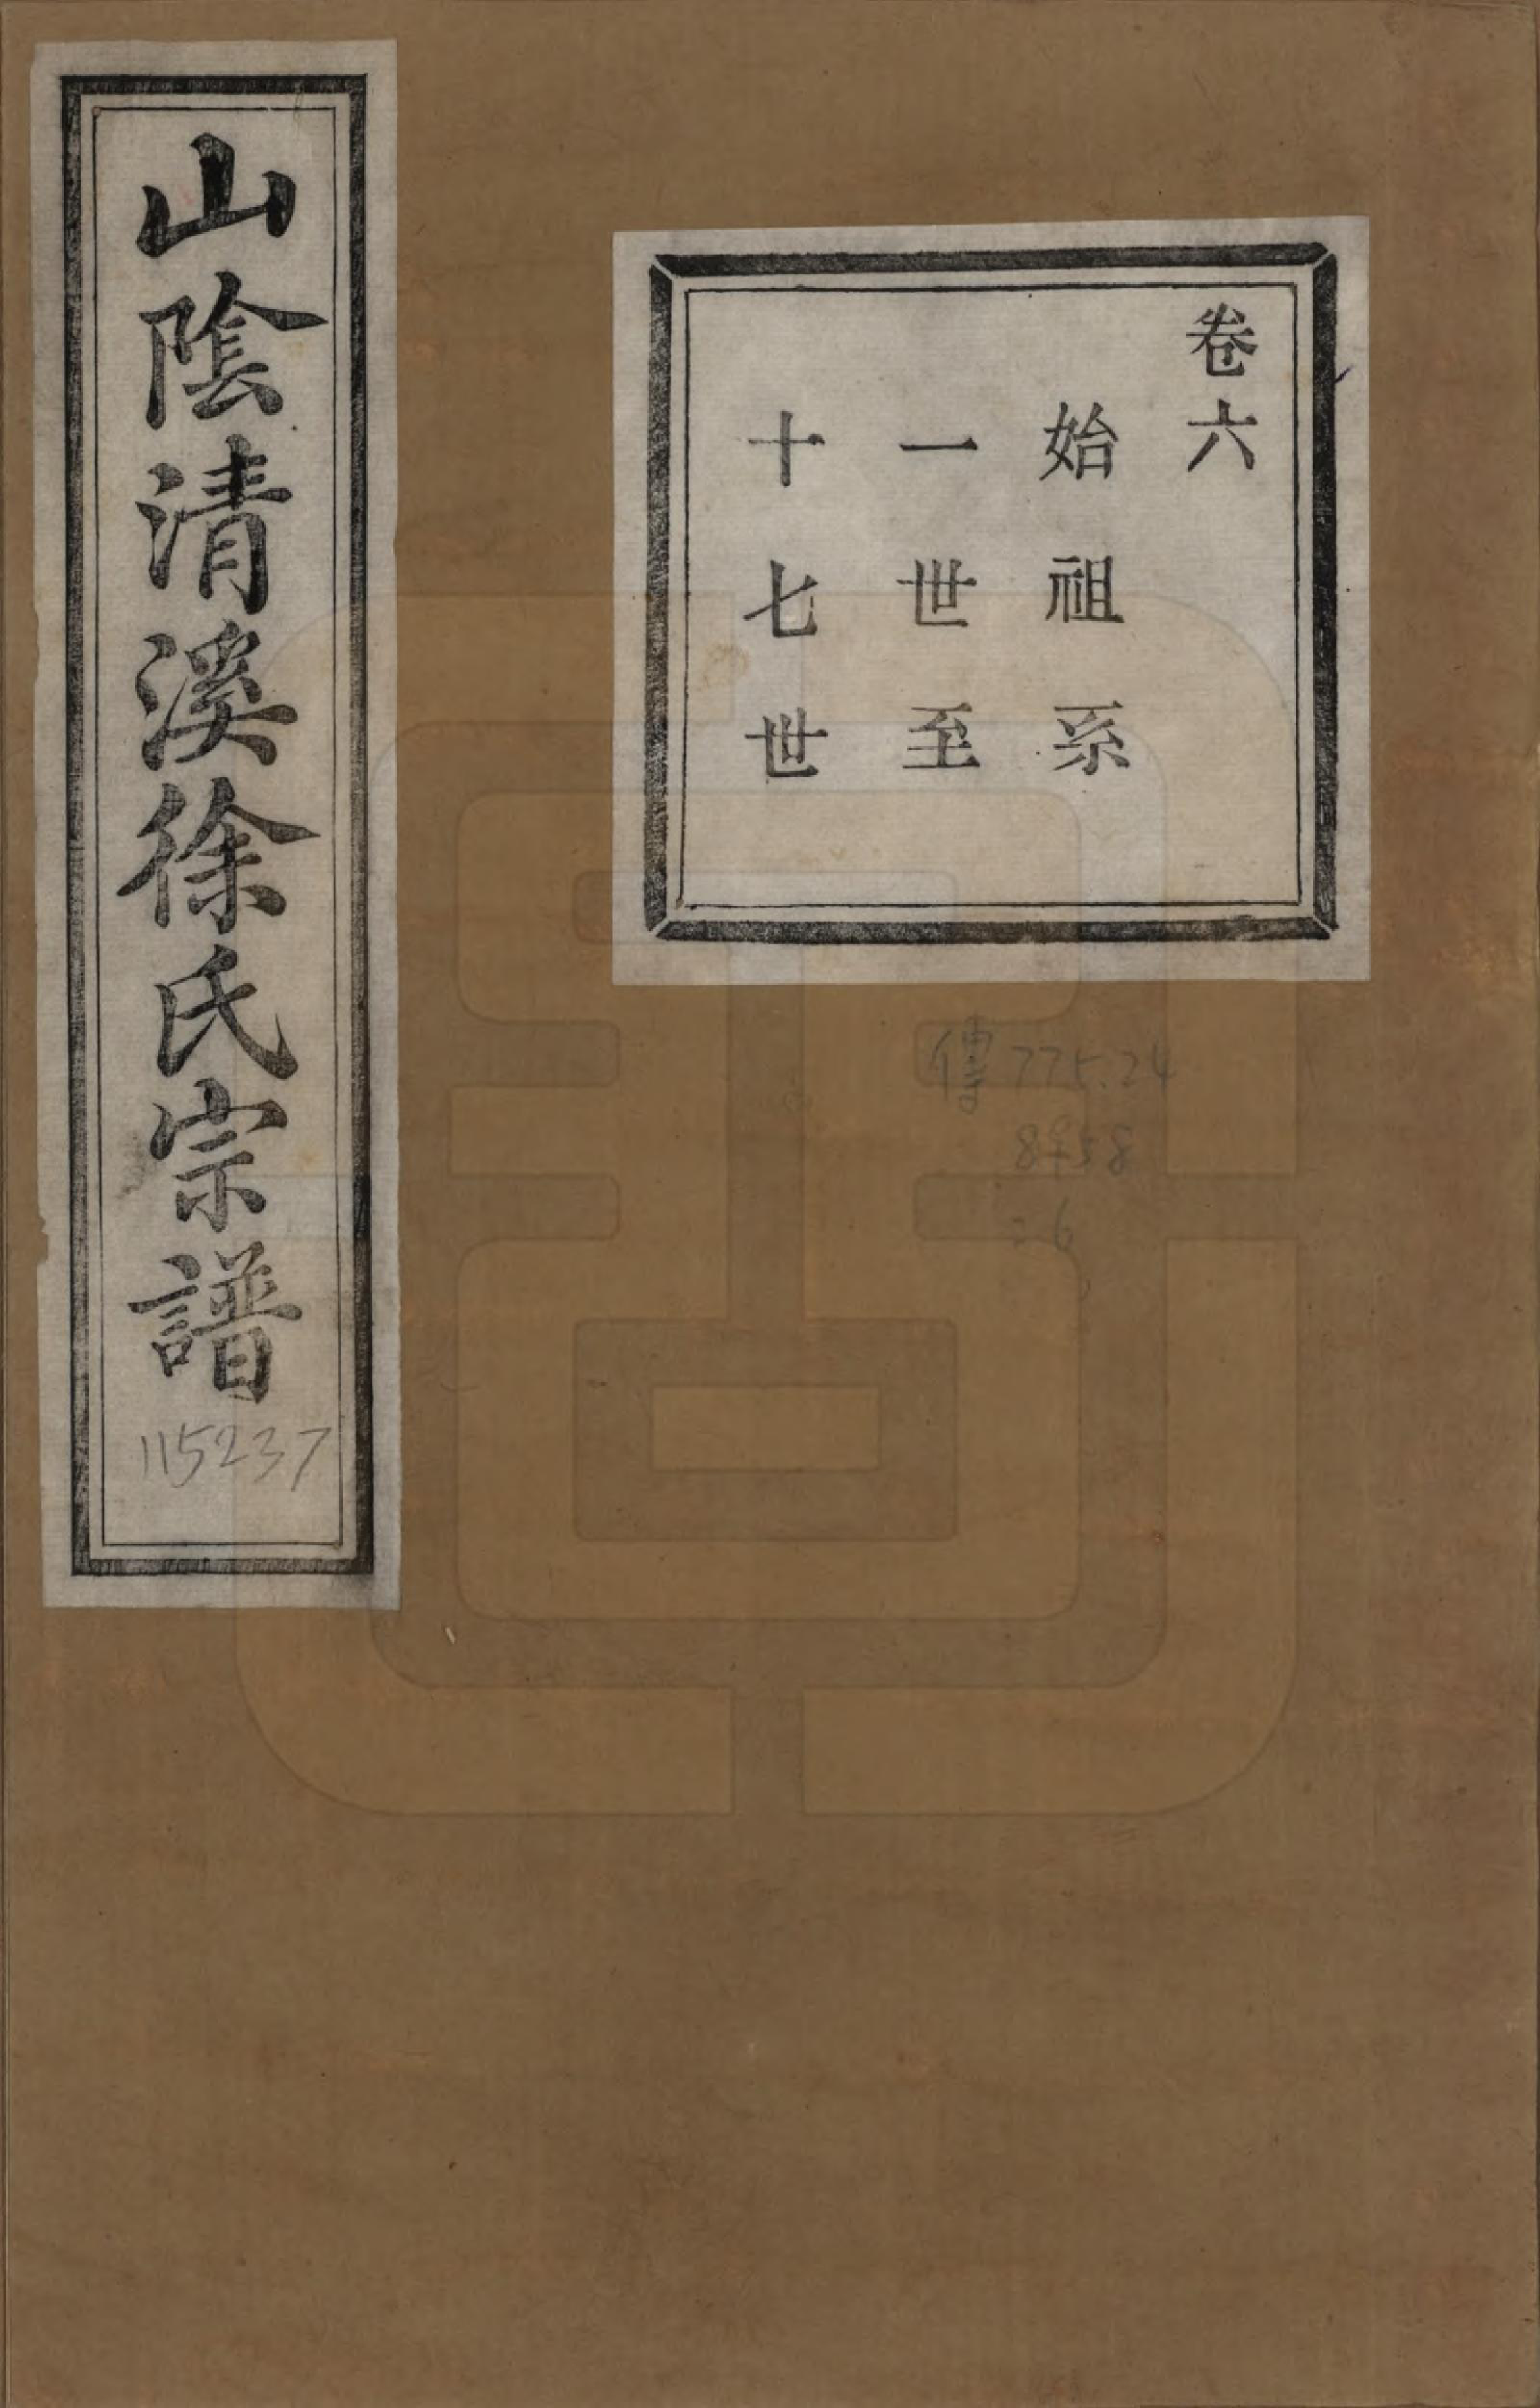 卷六
始祖系
一世至
十七世
山陰清溪徐氏宗譜
115237
傳775.24
8458
:6